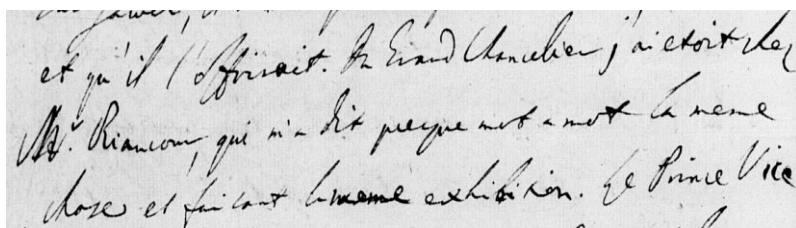 et qu'il l'offriroit. Du Grand Chancelier j'ai etoit chez
Mr. Riancour, qui m'a dit presque mot a mot la meme
chose et faisant la meme exhibition. Le Prince Vice